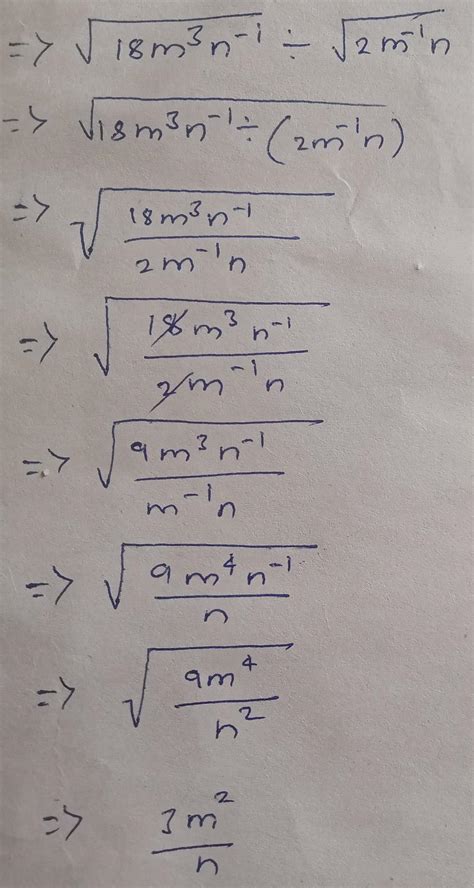 => √(18m³n⁻¹) ÷ √(2m⁻¹n)
=> √(18m³n⁻¹ ÷ (2m⁻¹n))
=> √(18m³n⁻¹ / 2m⁻¹n)
=> √(18m³n⁻¹ / 2m⁻¹n)
=> √(9m³n⁻¹ / m⁻¹n)
=> √(9m⁴n⁻¹ / n)
=> √(9m⁴ / n²)
=> 3m² / n